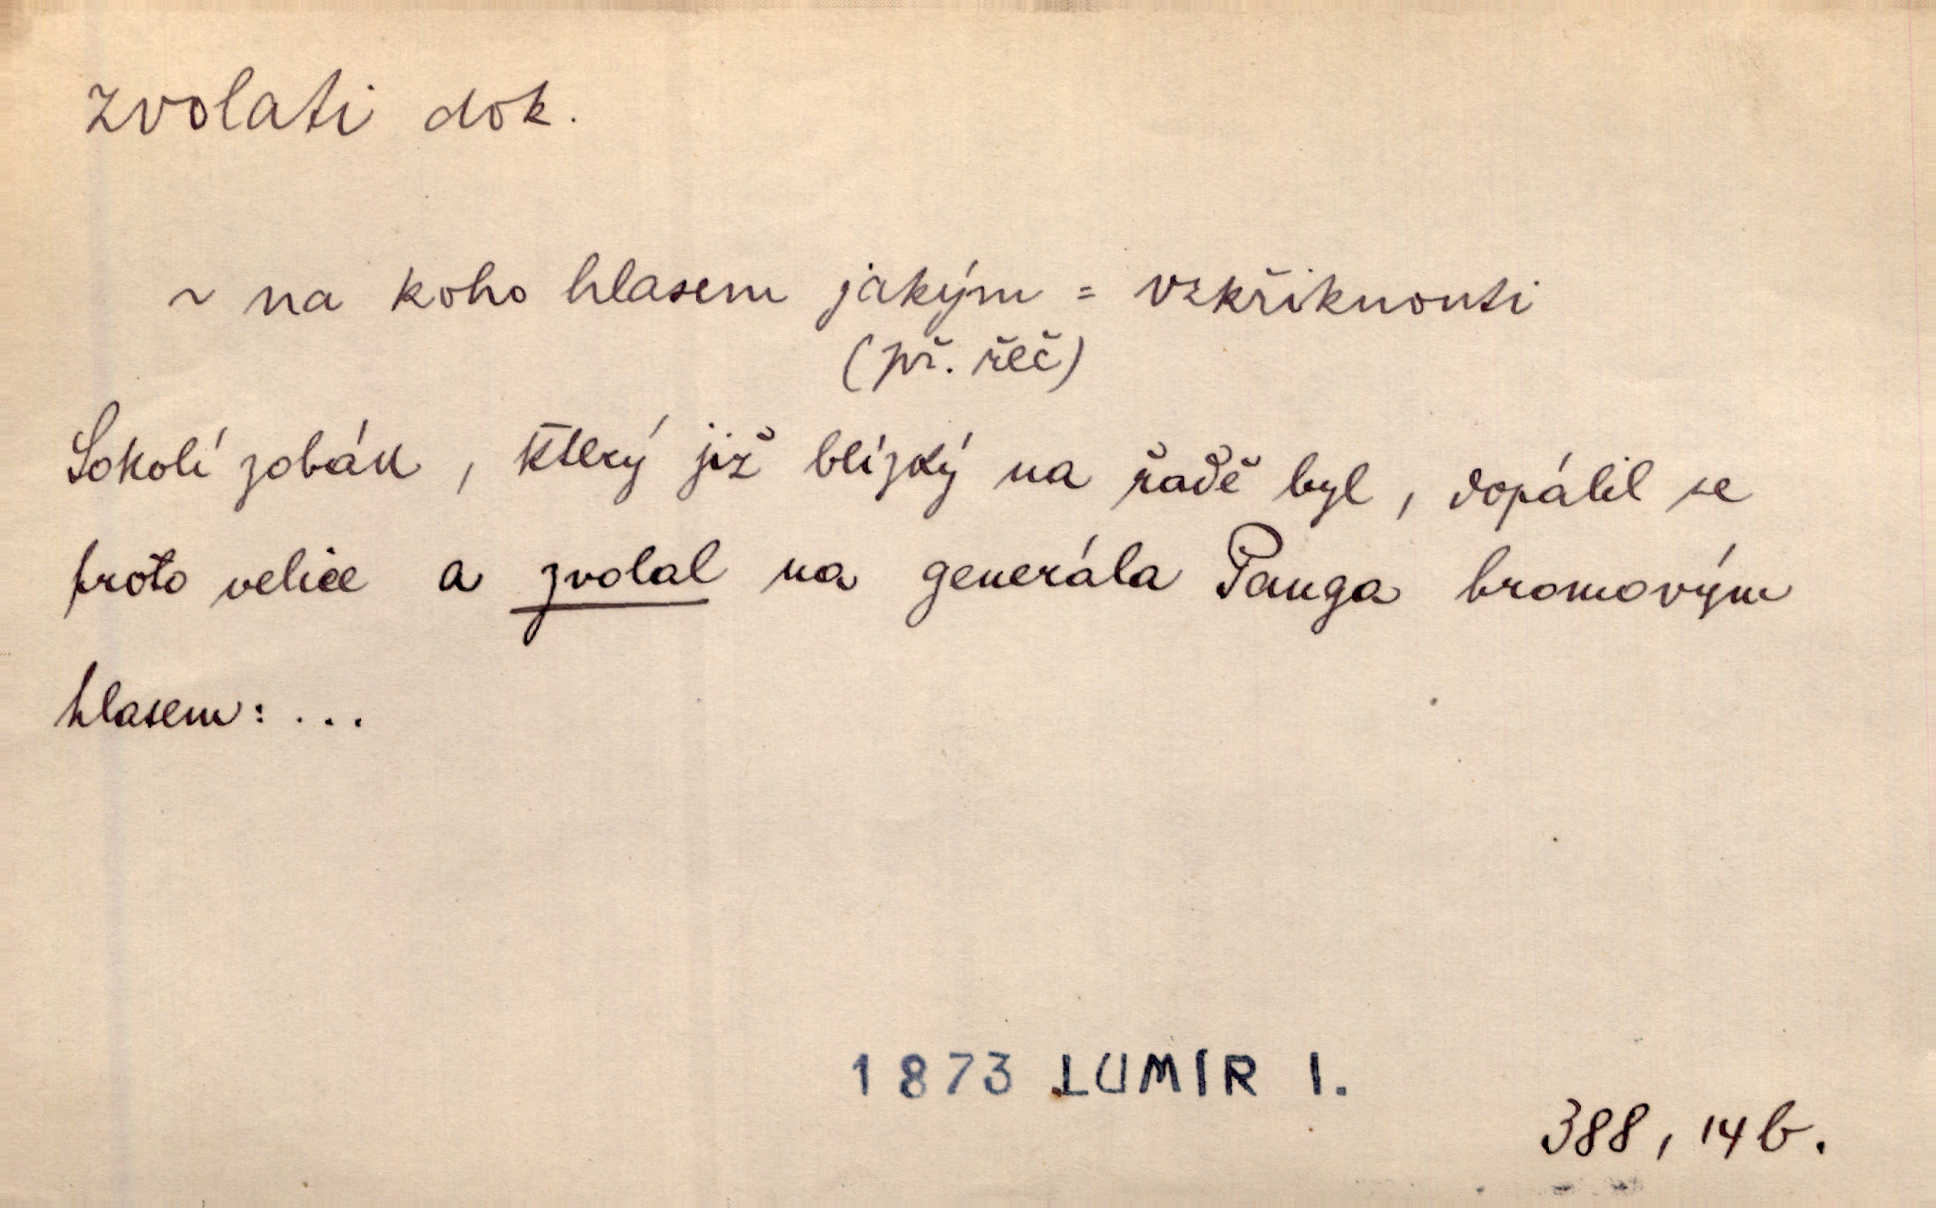 zvolati dok.
~ na koho hlasem jakým = vzkřiknouti
(př. řeč)
Sokolí zobák, který již blízký na řadě byl, dopálil se
proto velice a zvolal na generála Panga bromovým
hlasem: ...
1873 LUMÍR I.
388, 14 b.